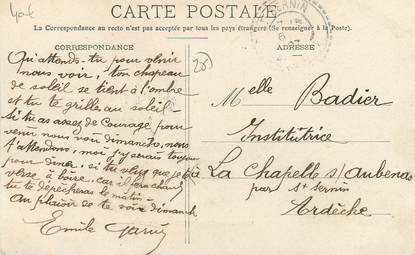 CARTE POSTALE
La Correspondance au recto n'est pas acceptée par tous les pays étrangers (Se renseigner à la Poste.)
CORRESPONDANCE
ADRESSE
SERNIN
28
Qu'attends-tu pour venir
nous voir, ton chapeau
de soleil se tient à l'ombre
et tu te grille au soleil
Si tu as assez de courage pour
venir nous voir dimanche, nous
t'attendons, moi j'y serais toujours
pour diner, si tu veux que je te
verse à boire, car il fera chaud
tu te dépêcheras le matin
Au plaisir de te voir dimanche
Emile
Melle Badier
Institutrice
à La Chapelle s/Aubenas
par St Sernin
Ardèche